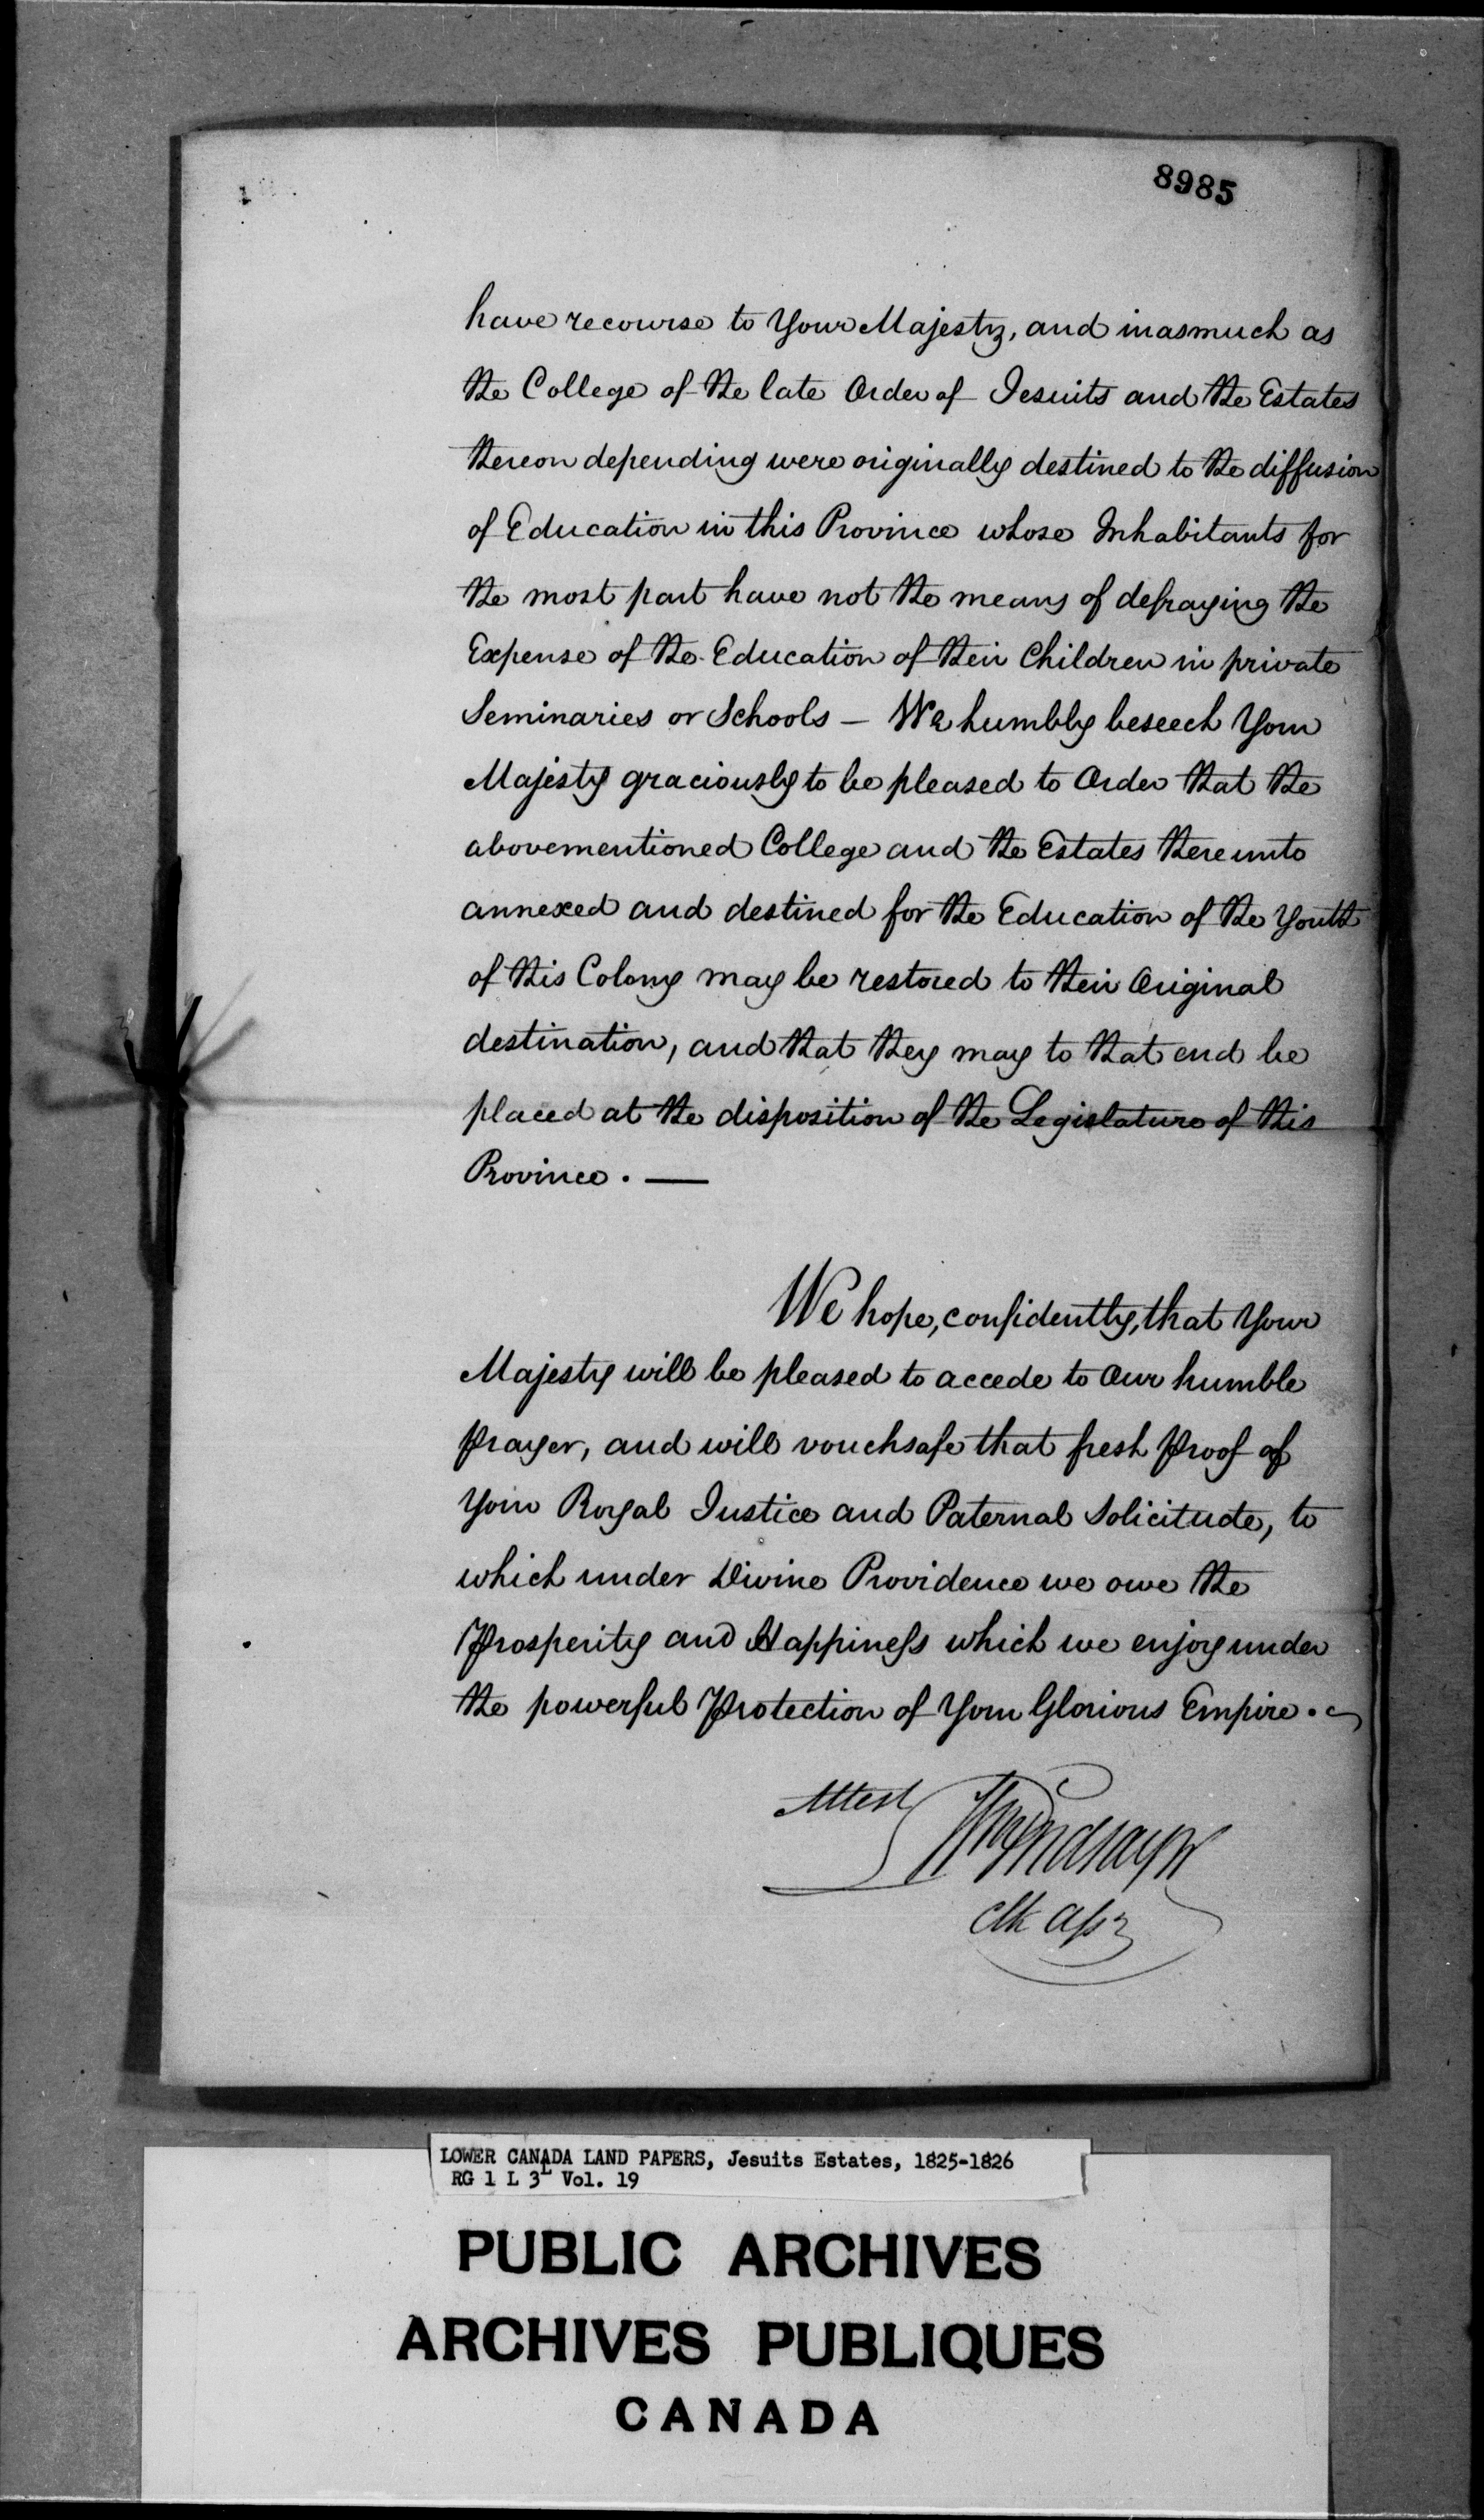 8985
have recourse to Your Majesty, and inasmuch as
the College of the late Order of Jesuits and the Estates
thereon depending were originally destined to the diffusion
of Education in this Province whose Inhabitants for
the most part have not the means of defraying the
Expense of the Education of their Children in private
Seminaries or Schools — We humbly beseech Your
Majesty graciously to be pleased to Order that the
abovementioned College and the Estates thereunto
annexed and destined for the Education of the Youth
of this Colony may be restored to their Original
destination, and that they may to that end be
placed at the disposition of the Legislature of this
Province. —
We hope, confidently, that Your
Majesty will be pleased to accede to Our humble
prayer, and will vouchsafe that fresh proof of
Your Royal Justice and Paternal Solicitude, to
which under Divine Providence we owe the
Prosperity and Happiness which we enjoy under
the powerful Protection of Your Glorious Empire.
Attest Wm Lindsay
Clk Assy
LOWER CANADA LAND PAPERS, Jesuits Estates, 1825-1826
RG 1 L 3L Vol. 19
PUBLIC ARCHIVES
ARCHIVES PUBLIQUES
CANADA